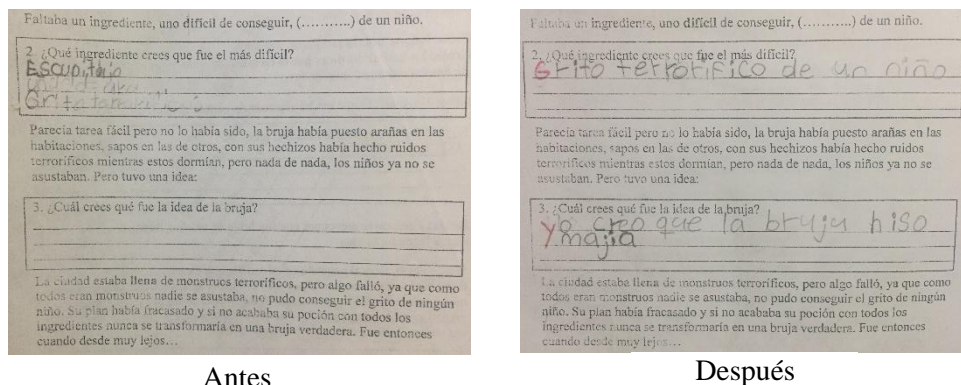 Faltaba un ingrediente, uno difícil de conseguir, (...........) de un niño.
2. ¿Qué ingrediente crees que fue el más difícil?
Escupitajo
Parecía tarea fácil pero no lo había sido, la bruja había puesto arañas en las
habitaciones, sapos en las de otros, con sus hechizos había hecho ruidos
terroríficos mientras estos dormían, pero nada de nada, los niños ya no se
asustaban. Pero tuvo una idea:
3. ¿Cuál crees qué fue la idea de la bruja?
La ciudad estaba llena de monstruos terroríficos, pero algo falló, ya que como
todos eran monstruos nadie se asustaba, no pudo conseguir el grito de ningún
niño. Su plan había fracasado y si no acababa su poción con todos los
ingredientes nunca se transformaría en una bruja verdadera. Fue entonces
cuando desde muy lejos…
Antes
Faltaba un ingrediente, uno difícil de conseguir, (...........) de un niño.
2. ¿Qué ingrediente crees que fue el más difícil?
Grito terrorifico de un niño
Parecía tarea fácil pero no lo había sido, la bruja había puesto arañas en las
habitaciones, sapos en las de otros, con sus hechizos había hecho ruidos
terroríficos mientras estos dormían, pero nada de nada, los niños ya no se
asustaban. Pero tuvo una idea:
3. ¿Cuál crees qué fue la idea de la bruja?
Yo creo que la bruja hiso
majia
La ciudad estaba llena de monstruos terroríficos, pero algo falló, ya que como
todos eran monstruos nadie se asustaba, no pudo conseguir el grito de ningún
niño. Su plan había fracasado y si no acababa su poción con todos los
ingredientes nunca se transformaría en una bruja verdadera. Fue entonces
cuando desde muy lejos…
Después